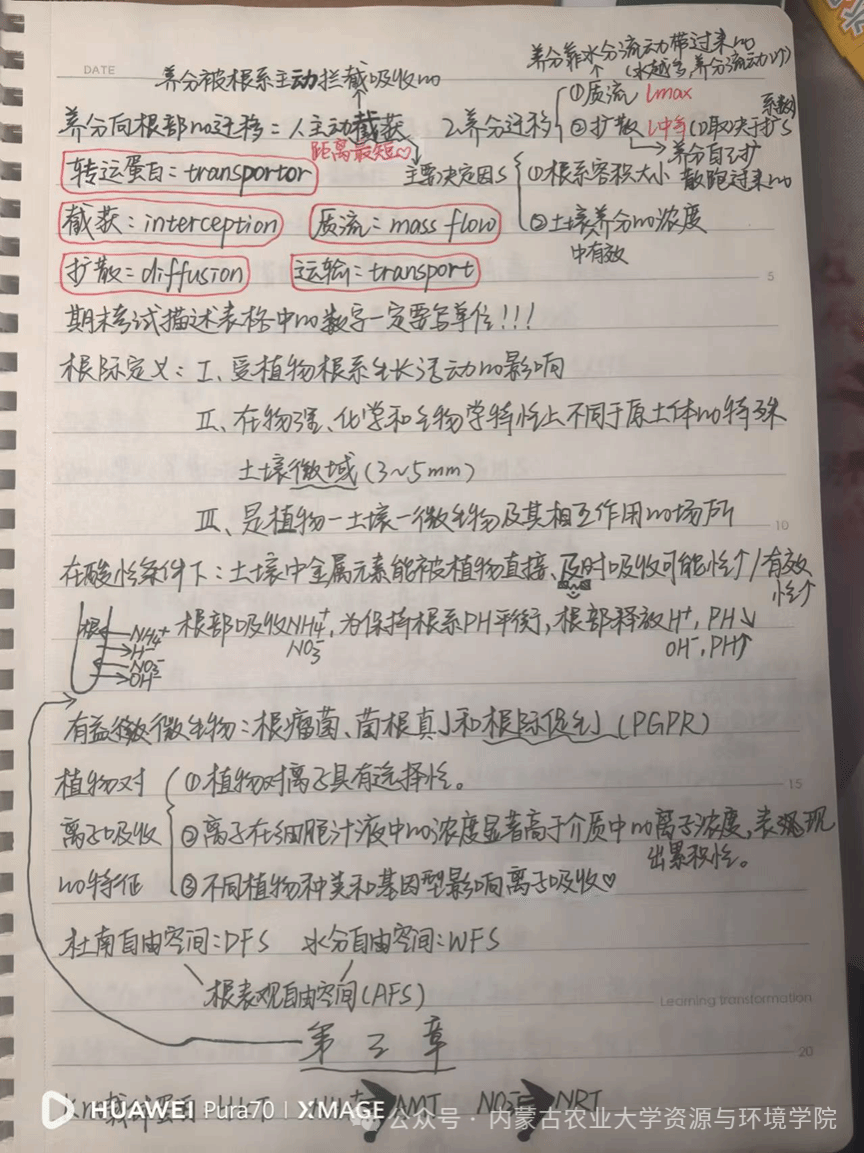 DATE
养分靠水分流动带过来no
(水越多,养分流动↑)
养分被根系主动拦截吸收no
①质流 lmax
养分向根部no迁移:1.主动截获 2.养分迁移 ②扩散 l中等 (取决于扩S系数)
距离最短♡
养分自己扩散跑过来no
转运蛋白:transportor
主要决定因S ①根系容积大小
截获:interception 质流:mass flow ②土壤养分no浓度
中有效
扩散:diffusion 运输:transport
5
期末考试描述表格中no数字一定要写单位!!!
根际定义:Ⅰ、受植物根系生长活动no影响
Ⅱ、在物理、化学和生物学特性上不同于原土体no特殊
土壤微域(3~5mm)
Ⅲ、是植物-土壤-微生物及其相互作用no场所
10
在酸性条件下:土壤中金属元素能被植物直接、及时吸收可能性↑/有效性↑
根 NH₄⁺ H⁻ NO₃⁻ OH⁻
根部吸收NH₄⁺,为保持根系PH平衡,根部释放H⁺,PH↘
NO₃⁻ OH⁻,PH↑
有益微生物:根瘤菌、菌根真J和根际促生J(PGPR)
植物对离子吸收no特征
①植物对离子具有选择性。
15
②离子在细胞汁液中no浓度显著高于介质中no离子浓度,表现出累积性。
③不同植物种类和基因型影响离子吸收♡
杜南自由空间:DFS 水分自由空间:WFS
根表观自由空间(AFS)
Learning transformation
第三章
20
NRT
HUAWEI Pura70 | XMAGE
公众号·内蒙古农业大学资源与环境学院